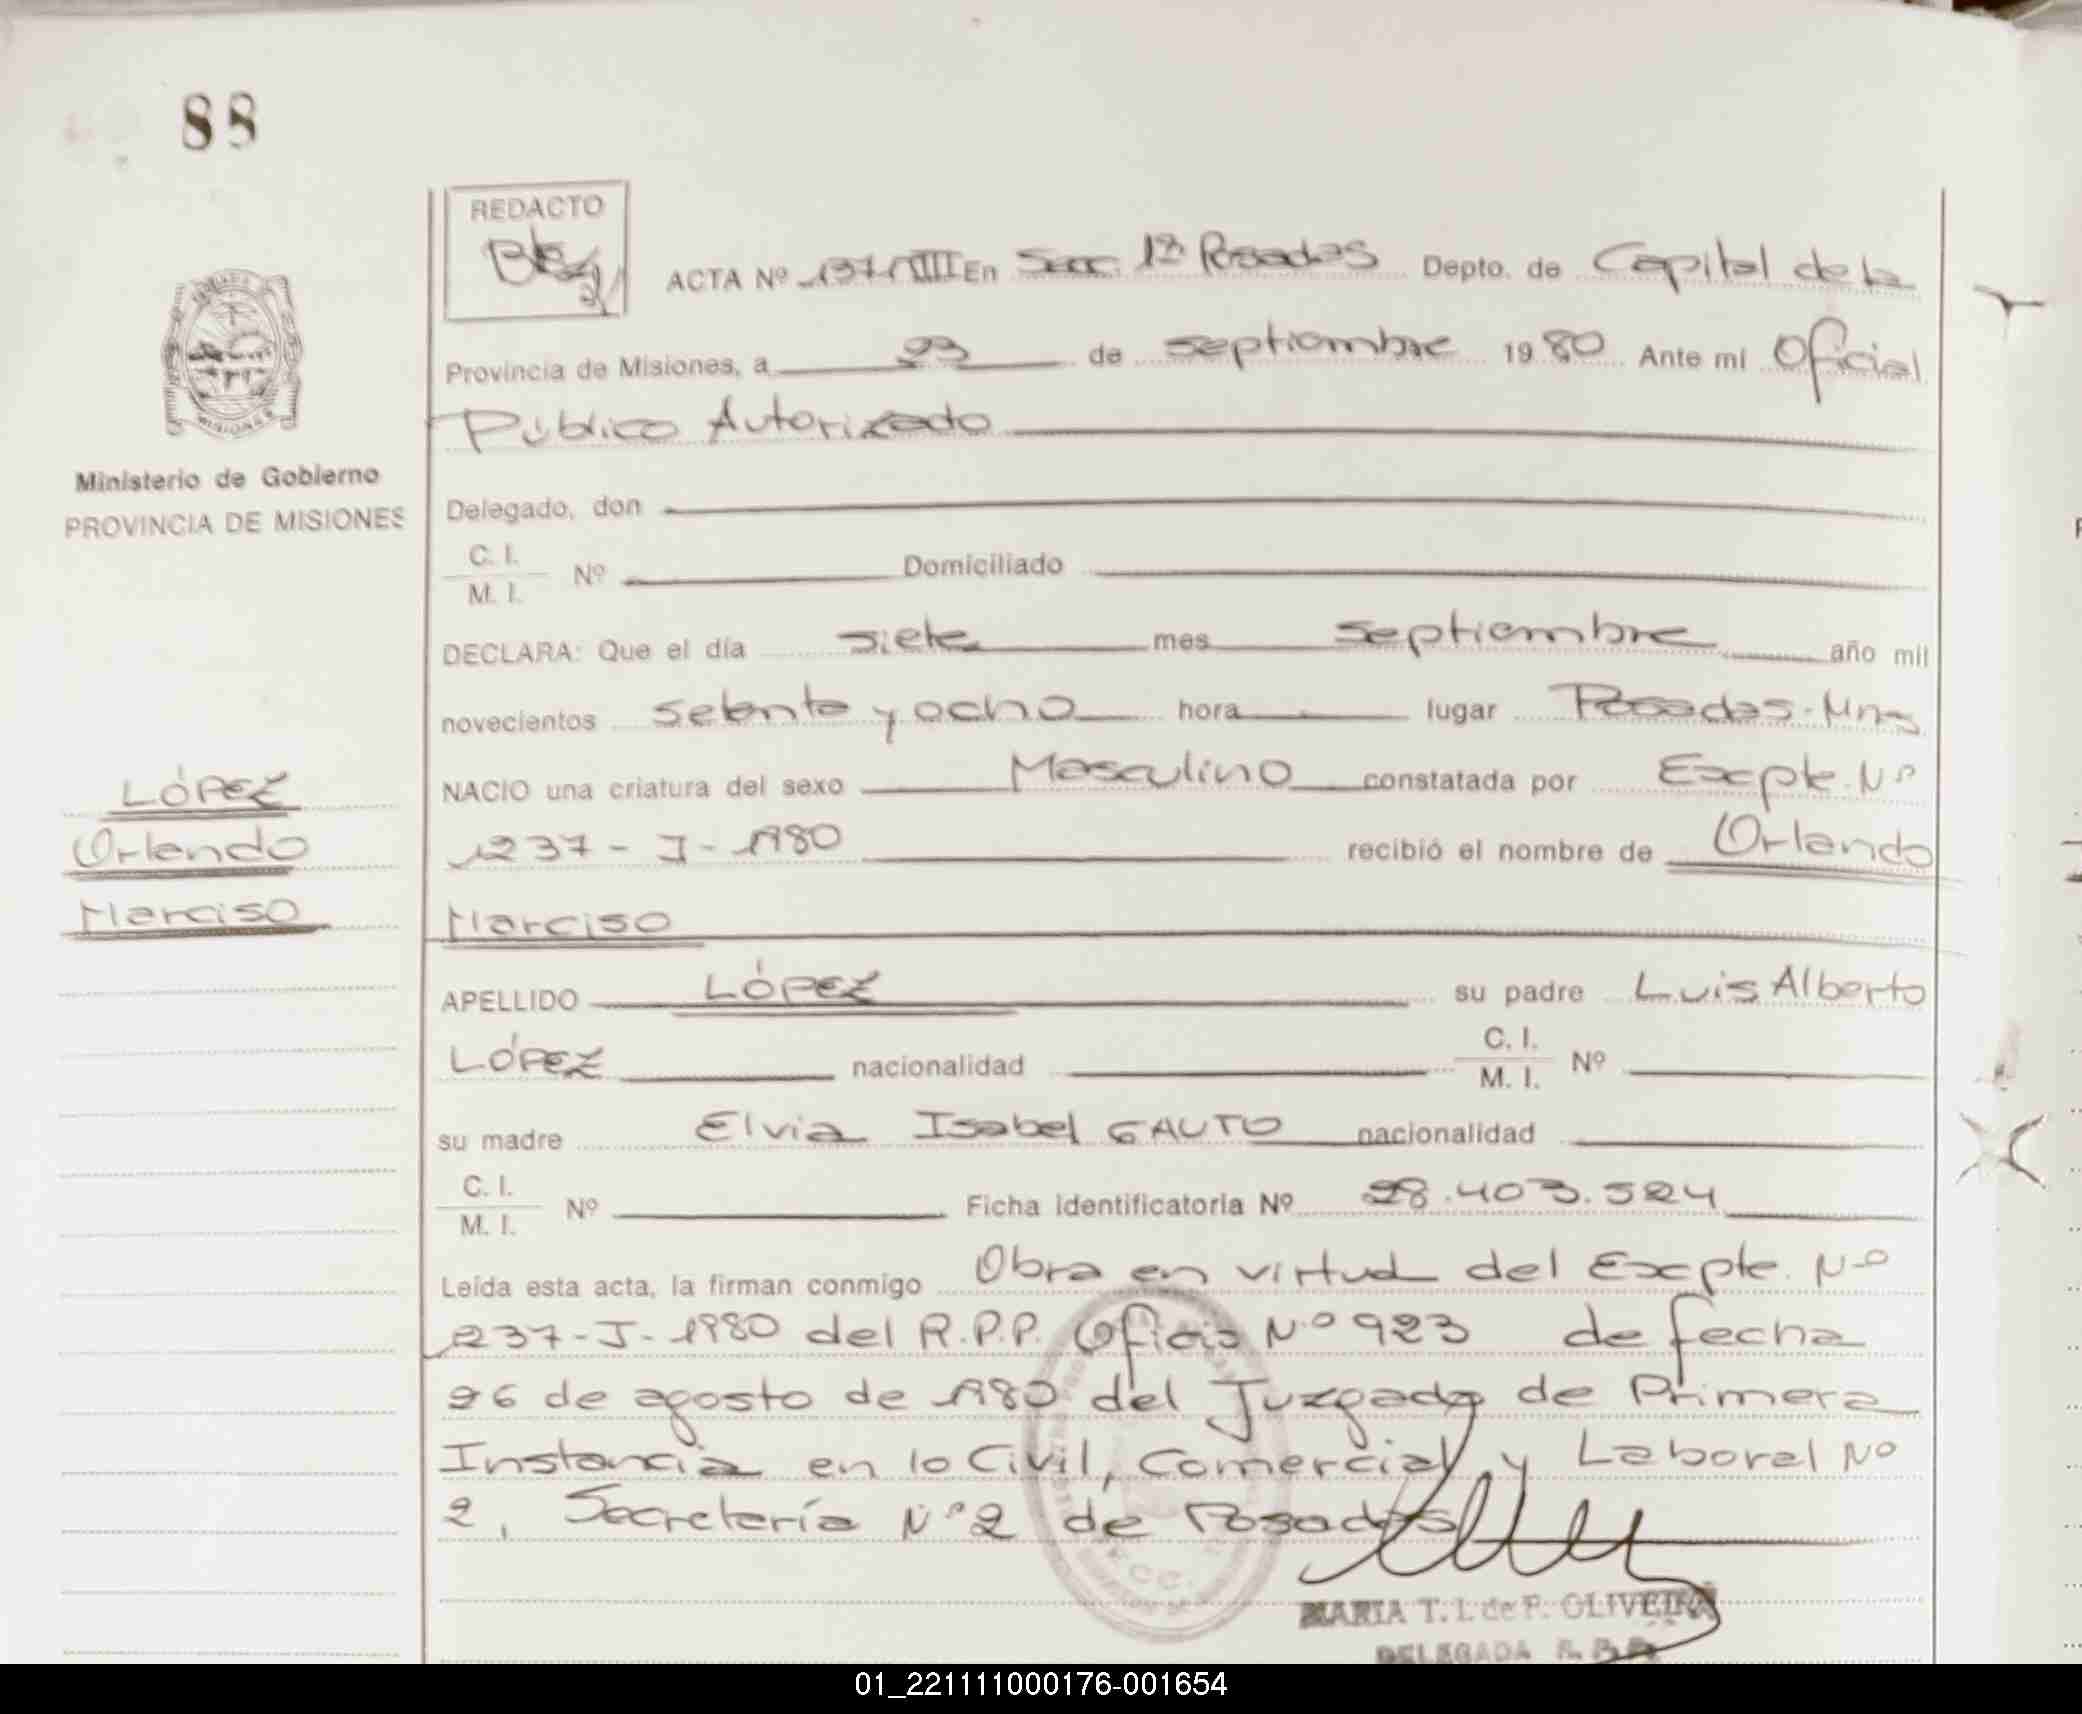 88
REDACTO
ACTA Nº 1371 VIII En Secc. 1ª Posadas Depto. de Capital de la
Provincia de Misiones, a 23 de septiembre 1980 Ante mi Oficial
Público Autorizado
Ministerio de Gobierno
PROVINCIA DE MISIONES
Delegado, don
C. I.
M. I. Nº Domiciliado
DECLARA: Que el día siete mes septiembre año mil
novecientos setenta y ocho hora lugar Posadas - Mnes
LÓPEZ
Orlando
Narciso
NACIO una criatura del sexo Masculino constatada por Excpte. Nº
1237 - J - 1980 recibió el nombre de Orlando
Narciso
APELLIDO LÓPEZ su padre Luis Alberto
LÓPEZ nacionalidad C. I.
M. I. Nº
su madre Elvia Isabel GAUTO nacionalidad
C. I.
M. I. Nº Ficha identificatoria Nº 28.403.524
Leída esta acta, la firman conmigo Obra en virtud del Excpte. Nº
1237 - J - 1980 del R.P.P. Oficio Nº 923 de fecha
26 de agosto de 1980 del Juzgado de Primera
Instancia en lo Civil, Comercial y Laboral Nº
2, Secretería Nº 2 de Posadas
MARIA T. I. de P. OLIVEIRA
DELEGADA
01_221111000176-001654